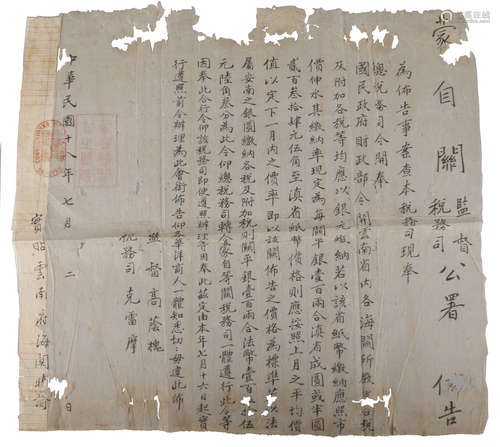 蒙自關監督稅務司公署佈告
為佈告事案查本稅務司現奉
總稅務司令開奉
國民政府財政部令開雲南省內各海關所徵各稅
及附加各稅等均應以銀元繳納若以該省紙幣繳納應照市
價伸水其繳納率現定為海關平銀壹百兩合滇省成圓或半圓
貳百叁拾肆元伍角至滇省紙幣價格則應按照上月之平均價
值以定下一月內之價率即以該關佈告之價格為標準若以法
屬安南之銀圓繳納各稅及附加稅則關平銀壹百兩合法幣壹百伍
元陸角叁分為此令仰總稅務司轉令蒙自等關稅務司一體遵行此令等
因奉此合行令仰該稅務司即便遵照辦理等因奉此茲定由本年七月十六日起實
行遵照前令辦理為此會銜佈告仰各華洋商人一體知悉切毋違此佈
監督高蔭槐
稅務司克雷摩
中華民國十八年七月二日
實貼雲南府海關